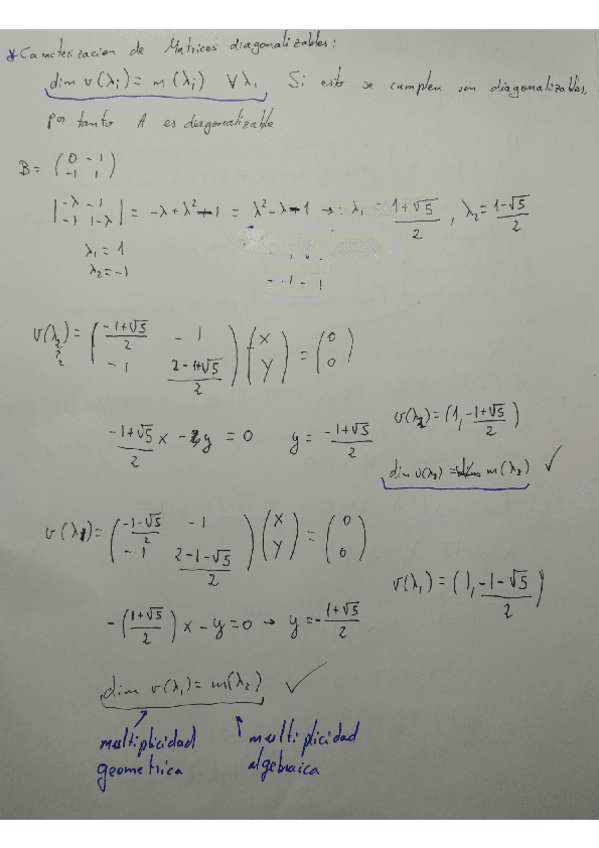 * Caracterizacion de Matrices diagonalizables:
dim v(λi) = m(λi) ∀λi Si esto se cumplen son diagonalizables,
Por tanto A es diagonalizable
B = (0 -1; -1 1)
|-λ -1; -1 1-λ| = -λ+λ²-1 = λ²-λ-1 → λ₁ = (1+√5)/2, λ₂ = (1-√5)/2
λ₁ = 1
λ₂ = -1
v(λ₂) = ((-1+√5)/2 -1; -1 (2-1+√5)/2)(x; y) = (0; 0)
(-1+√5)/2 x - y = 0 y = (-1+√5)/2 v(λ₂) = (1, (-1+√5)/2)
dim v(λ₂) = m(λ₂) ✓
v(λ₁) = ((-1-√5)/2 -1; -1 (2-1-√5)/2)(x; y) = (0; 0)
v(λ₁) = (1, (-1-√5)/2)
-((1+√5)/2) x - y = 0 → y = -(1+√5)/2
dim v(λ₁) = m(λ₂) ✓
multiplicidad multiplicidad
geometrica algebraica